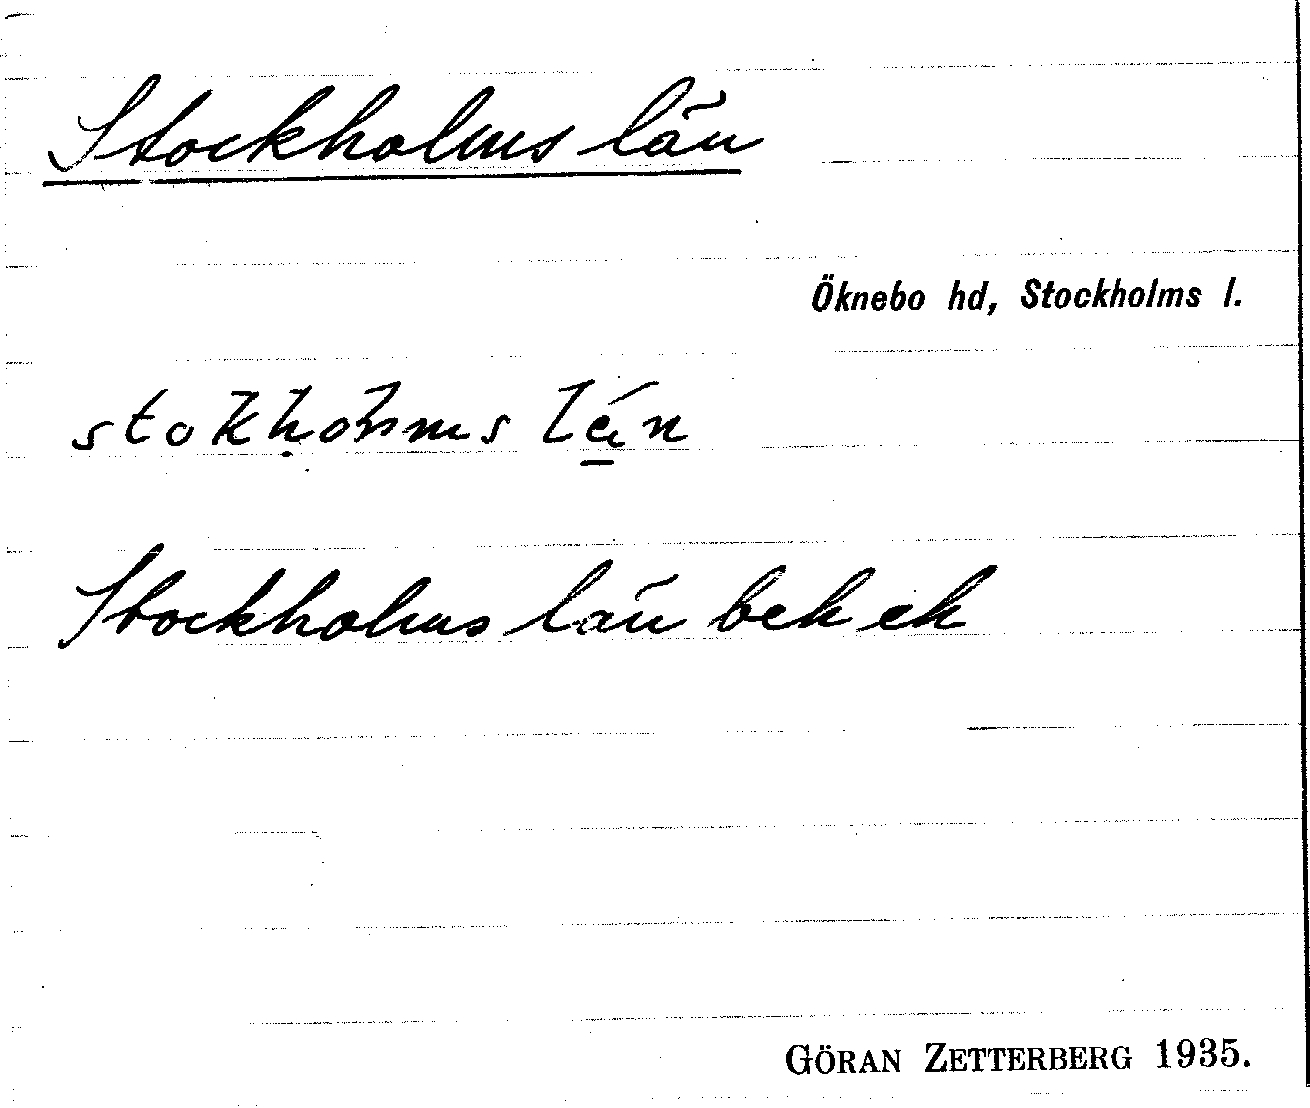 Stockholms län
Öknebo hd, Stockholms l.
Stockholms län bek ek
GÖRAN ZETTERBERG 1935.